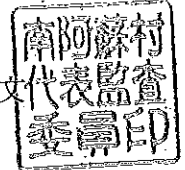 南阿蘇村
代表監査
委員印
文